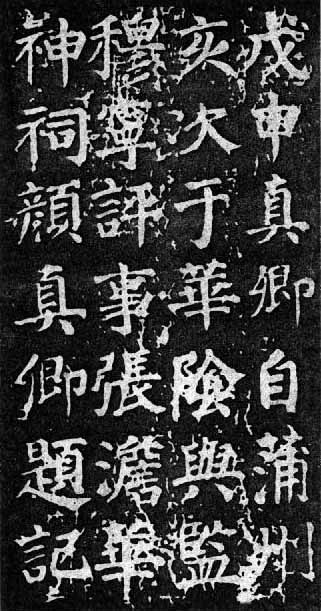 戊申真卿自蒲州
亥次于華陰與監
穆寧評事張澹華
神祠顏真卿題記